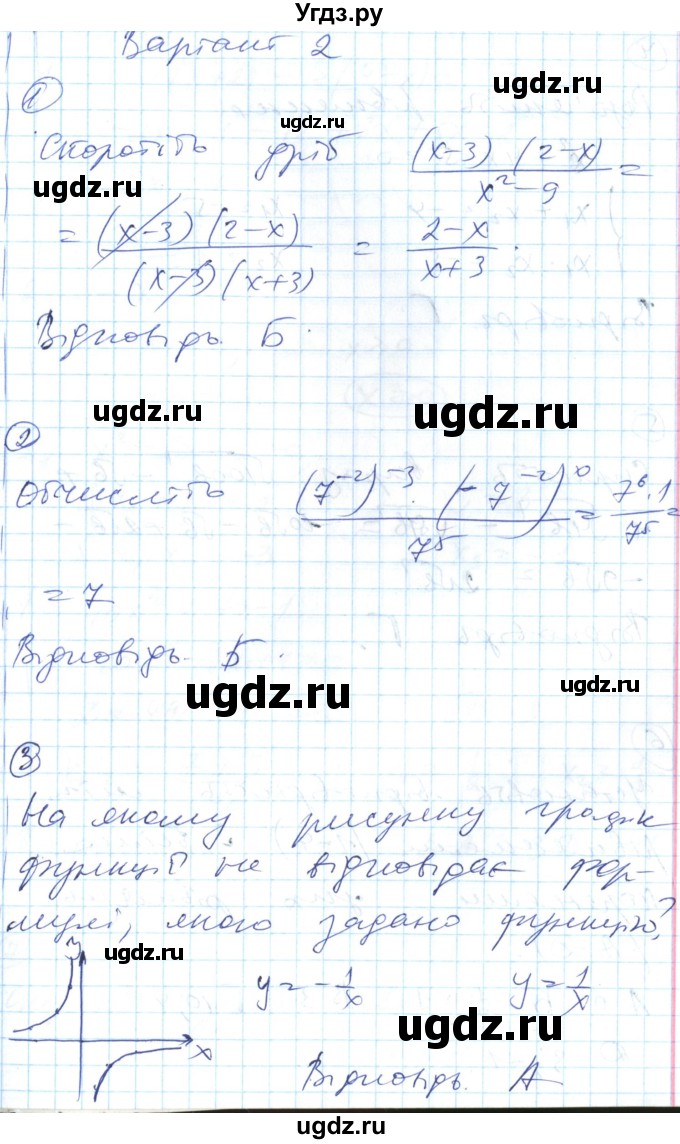 Угдз.ру
Варіант 2
ugdz.ru
①
ugdz.ru
Скоротіть дріб (x-3)(2-x) / x²-9 =
ugdz.ru
ugdz.ru
= (x-3)(2-x) / (x-3)(x+3) = 2-x / x+3.
ugdz.ru
ugdz.ru
Відповідь. Б.
ugdz.ru
ugdz.ru
②
Обчисліть (7⁻²)⁻³ · (-7⁻²)⁰ / 7⁵ = 7⁶·1 / 7⁵ =
= 7
Відповідь. Б.
ugdz.ru
ugdz.ru
③
ugdz.ru
На якому рисунку графік
функції не відповідає фор-
мулі, якою задано функцію?
ugdz.ru
y
y = -1/x y = 1/x
ugdz.ru
x
ugdz.ru
Відповідь. А
ugdz.ru